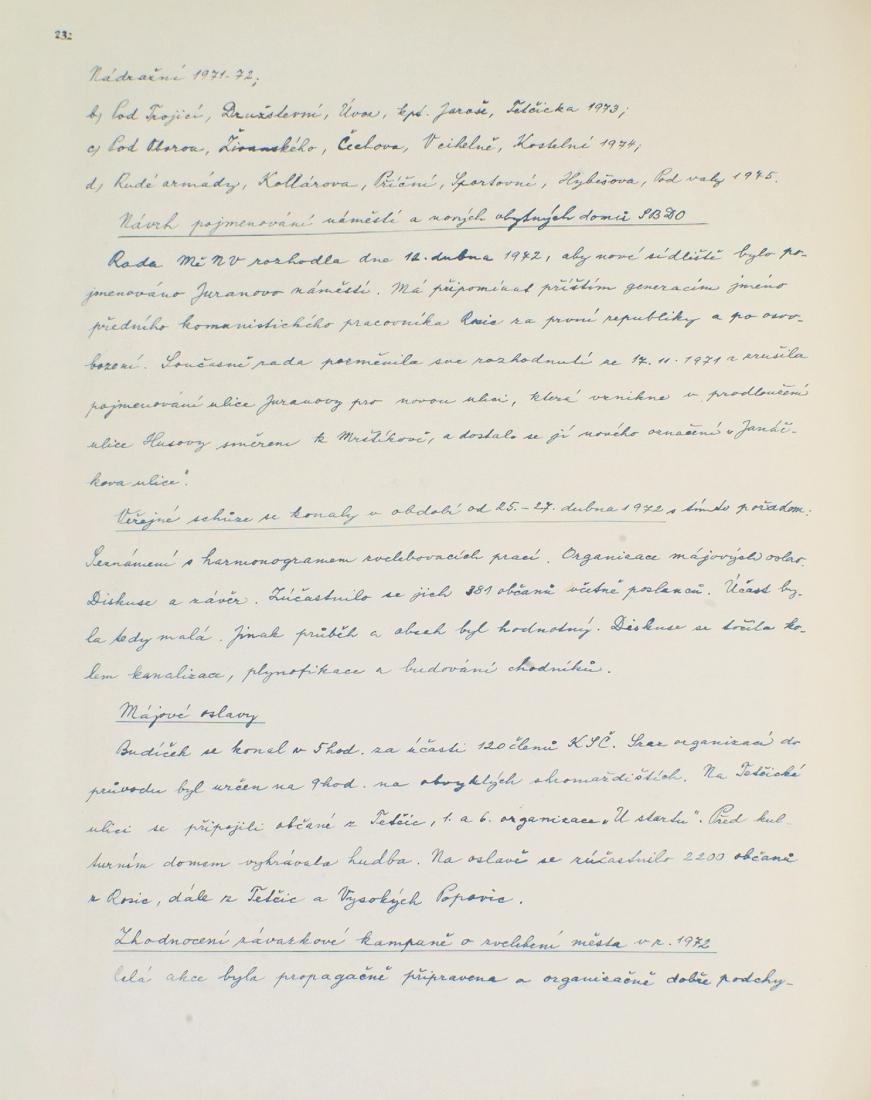 232
Nádražní 1971-72;
b) Pod Trojicí, Družstevní, Úvoz, kpt. Jaroše, Tetčická 1973;
c) Pod Oborou, Živanského, Čechova, V cihelně, Kostelní 1974;
d) Rudé armády, Kollárova, Příční, Sportovní, Hybešova, Pod valy 1975.
Návrh pojmenování náměstí a nových obytných domů SBDO
Rada MěNV rozhodla dne 12. dubna 1972, aby nové sídliště bylo po-
jmenováno Juranovo náměstí. Má připomínat příštím generacím jméno
předního komunistického pracovníka Rosic za první republiky a po osvo-
bození. Současně rada pozměnila své rozhodnutí ze 17. 11. 1971 a zrušila
pojmenování ulice Juranovy pro novou ulici, která vznikne v prodloužení
ulice Husovy směrem k Mrštíkově, a dostalo se jí nového označení „Janáč-
kova ulice".
Veřejné schůze se konaly v období od 25. - 27. dubna 1972 s tímto pořadem:
Seznámení s harmonogramem zvelebovacích prací. Organizace májových oslav.
Diskuse a závěr. Zúčastnilo se jich 381 občanů včetně poslanců. Účast by-
la tedy malá. Jinak průběh a obsah byl hodnotný. Diskuse se točila ko-
lem kanalizace, plynofikace a budování chodníků.
Májové oslavy
Budíček se konal v 5 hod. za účasti 120 členů KSČ. Sraz organizací do
průvodu byl určen na 9 hod. na obvyklých shromaždištích. Na Tetčické
ulici se připojili občané z Tetčic, 1. a 6. organizace „U startu". Před kul-
turním domem vyhrávala hudba. Na oslavě se zúčastnilo 2200 občanů
z Rosic, dále z Tetčic a Vysokých Popovic.
Zhodnocení závazkové kampaně o zvelebení města v r. 1972
Celá akce byla propagačně připravena a organizačně dobře podchy-